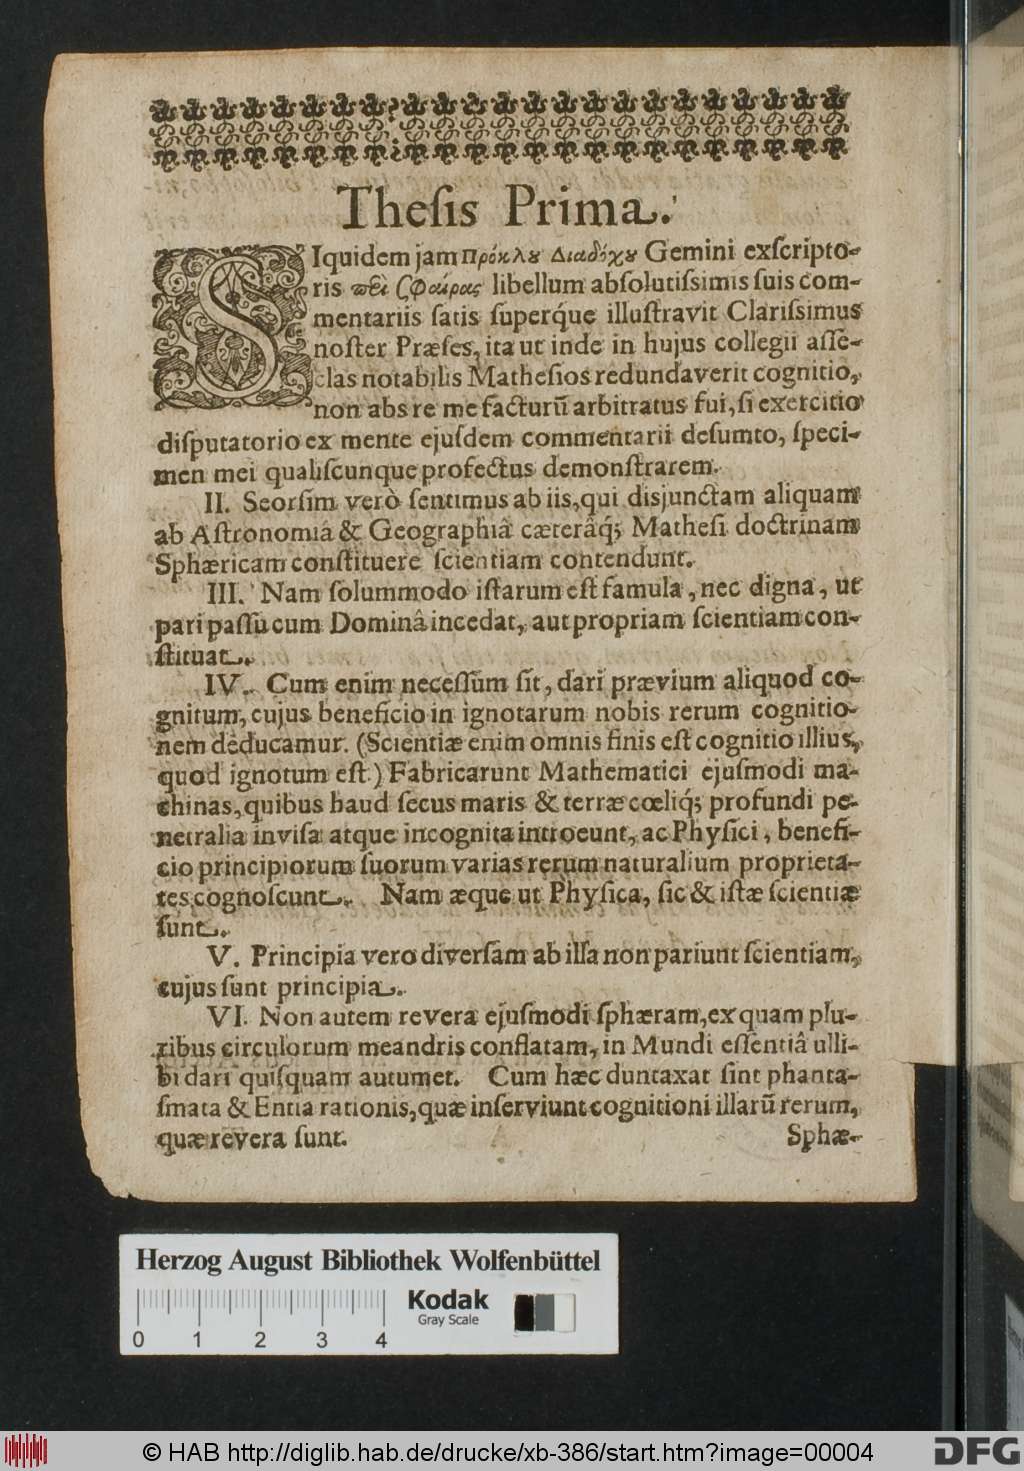 Theſis Prima.
SIquidem jam Πρόκλȣ Διαδόχȣ Gemini exſcripto-
ris πεὶ Σφαίρας libellum abſolutiſsimis ſuis com-
mentariis ſatis ſuperq́ue illuſtravit Clariſsimus
noſter Præſes, ita ut inde in hujus collegii aſſe-
clas notabilis Matheſios redundaverit cognitio,
non abs re me facturũ arbitratus fui, ſi exercitio
diſputatorio ex mente ejuſdem commentarii deſumto, ſpeci-
men mei qualiſcunque profectus demonſtrarem.
II. Seorſim verò ſentimus ab iis, qui disjunctam aliquam
ab Aſtronomiâ & Geographiâ cæterâq́; Matheſi doctrinam
Sphæricam conſtituere ſcientiam contendunt.
III. Nam ſolummodo iſtarum eſt famula, nec digna, ut
pari paſſu cum Dominâ incedat, aut propriam ſcientiam con-
ſtituat.
IV. Cum enim neceſſum ſit, dari prævium aliquod co-
gnitum, cujus beneficio in ignotarum nobis rerum cognitio-
nem deducamur. (Scientiæ enim omnis finis eſt cognitio illius,
quod ignotum eſt.) Fabricarunt Mathematici ejuſmodi ma-
chinas, quibus haud ſecus maris & terræ cœliq́; profundi pe-
netralia inviſa atque incognita introeunt, ac Phyſici, benefi-
cio principiorum ſuorum varias rerum naturalium proprieta-
tes cognoſcunt. Nam æque ut Phyſica, ſic & iſtæ ſcientiæ
ſunt.
V. Principia vero diverſam ab illa non pariunt ſcientiam,
cujus ſunt principia.
VI. Non autem revera ejuſmodi ſphæram, ex quam plu-
ribus circulorum meandris conflatam, in Mundi eſſentiâ ulli-
bi dari quiſquam autumet. Cum hæc duntaxat ſint phanta-
ſmata & Entia rationis, quæ inſerviunt cognitioni illarũ rerum,
quæ revera ſunt.
Sphæ-
Herzog August Bibliothek Wolfenbüttel
Kodak
Gray Scale
0 1 2 3 4
© HAB http://diglib.hab.de/drucke/xb-386/start.htm?image=00004
DFG